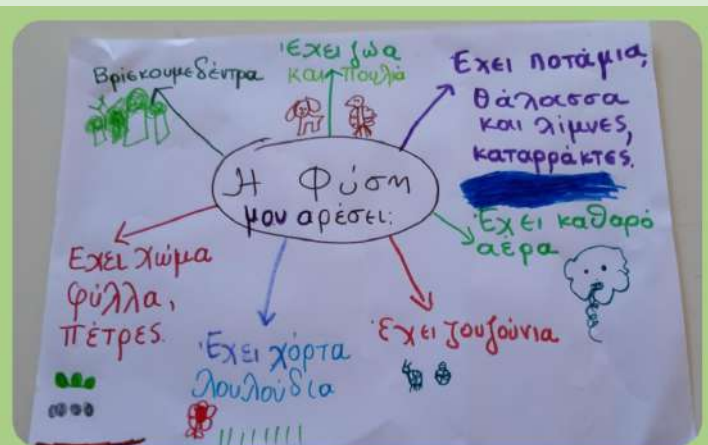 Η Φύση
μου αρέσει:
Βρίσκουμε δέντρα
Έχει ζώα
και πουλιά
Έχει ποτάμια,
θάλασσα
και λίμνες,
καταρράκτες.
Έχει καθαρό
αέρα
Έχει ζουζούνια
Έχει χόρτα
λουλούδια
Εχει χώμα
φύλλα,
πέτρες.